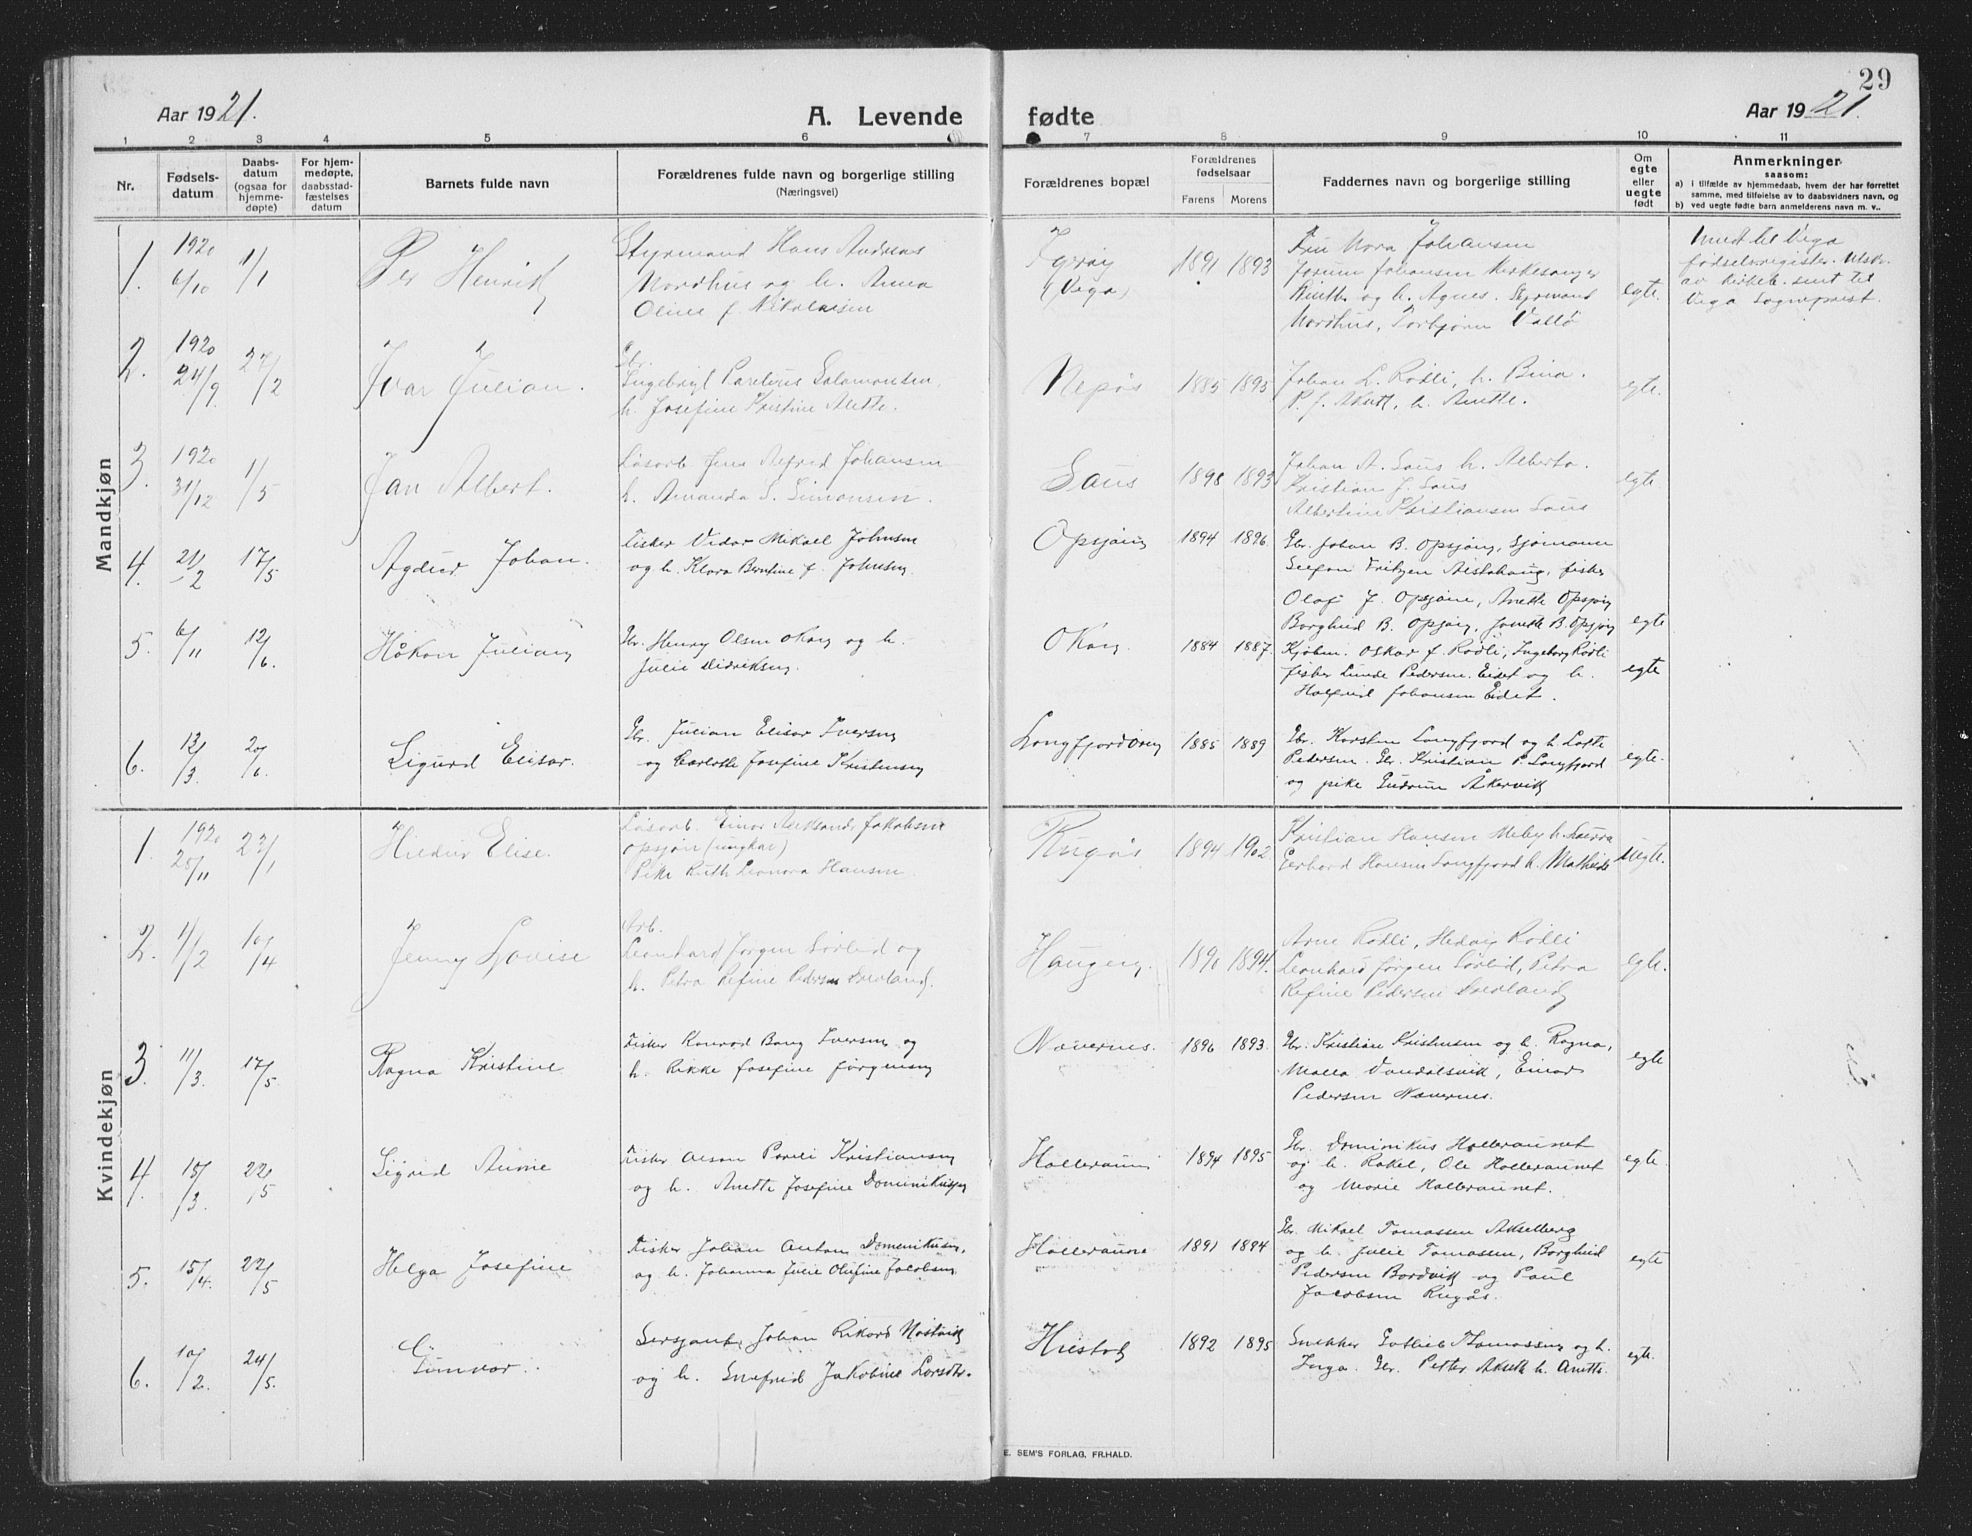 29
Aar 1921.
A. Levende fødte
Aar 1921.
1 2 3 4 5 6 7 8 9 10 11
Nr.
Fødsels-
datum
Daabs-
datum
(ogsaa for
hjemme-
døpte)
For hjem-
medøpte,
daabsstad-
fæstelses
datum
Barnets fulde navn
Forældrenes fulde navn og borgerlige stilling
(Næringsvei)
Forældrenes bopæl
Forældrenes
fødselsaar
Farens Morens
Faddernes navn og borgerlige stilling
Om
egte
eller
uegte
født
Anmerkninger
saasom:
a) i tilfælde av hjemmedaab, hvem der har forrettet
samme, med tilføielse av to daabsvidners navn, og
b) ved uegte fødte barn anmelderens navn m. v..
Mandkjøn
1. 1920 6/10 1/1
Per Henrik
Styrmand Hans Andreas
Nordhus og h. Anna
Oline f. Nikolaisen
(Vega)
1891 1893
Fru Nora Johansen
Jorum Johansen Kirkesanger
og h. Agnes. Styrmand
Nordhus, Torbjørn
egte.
Vega
fødselsregister. Utskr.
av kirkeb. sent til
Vega sogneprest.
2. 1920 24/9 27/2
Ivar Julian.
Gbr.
Ingebrigt Parelius Salamonsen
h. Josefine Kristine Alette.
Nepås
1885 1895
Johan L. Rødli, h. Bina.
P. J. h. Anette.
egte.
3. 1920 31/12 1/5
Jan Albert.
Løsarb. Jens Alfred Johansen
h. Amanda S. Simonsen.
Saus
1898 1893
Johan A. Saus h. Alberta.
Kristian J. Saus
Albertine Kristiansen Saus
egte.
4. 21/2 17/5
Johan.
Fisker Vidar Mikael Johnsen
og h. Klara Berntine f. Johnsen
Opsjøen
1894 1896.
Gbr. Johan B. Opsjøen, Sjømann
Fritzen Alstahaug, fisker
Olaf J. Opsjøen, Anette Opsjøen
Borghild B. Opsjøen, B. Opsjøen
egte
5. 6/11 12/6.
Håkon Julian
Gbr. Henry Olsen og h.
Julie Didriksen.
1884 1887.
Kjøbm. Oskar J. Rødli, Ingeborg Rødli
fisker Pedersen Eidet og h.
Johansen Eidet.
egte
6. 13/3. 20/6.
Sigurd Elisar.
Gbr. Julian Elisar Iversen
og Carlotte Josefine Kristensen
1885 1889
Gbr. Karsten Longfjord og h. Lotte
Pedersen. Gbr. Kristian P. Longfjord
og pike Gudrun Åkervik
egte.
Kvindekjøn
1. 1920 20/11 23/1
Hildur Elise.
Løsarb. Einar Aleksander Jakobsen
Opsjøen (ungkar)
Pike Ruth Leonora Hansen
Rugås
1894 1902
Kristian Hansen Meby h. Laura
Gerhard Hansen Longfjord h. Mathilde
uegte.
2. 1/2 10/4
Jenny Lovise
Arb.
Leonhard Jørgen Sørlid og
h. Petra Refine Pedersen
Haugen.
1890 1894.
Arne Rødli, Hedvig Rødli
Leonhard Jørgen Sørlid, Petra
Refine Pedersen
egte.
3. 11/3. 17/5.
Ragna Kristine
Fisker Konrad Bang Iversen og
h. Rikke Josefine Jørgensen
Nævernes.
1896 1893.
Gbr. Kristian Kristensen og h. Ragna,
Malla Vandalsvik, Einar
Pedersen Nævernes.
egte
4. 15/3. 22/5
Sigrid Anne
Fisker Kristiansen
og h. Anette Josefine Dominikusen
Hølleraunet
1894 1895
Gbr. Dominikus Hølleraunet
og h. Rakel, Ole Hølleraunet
og Marie Hølleraunet.
egte.
5. 15/4. 22/5
Helga Josefine
Fisker Johan Anton Dominikusen,
og h. Johanna Julie Olufine Jacobsen
Hølleraunet
1891 1894
Gbr. Mikael Tomassen Akselberg
og h. Julie Tomassen, Borghild
Pedersen Bardvik og Paul
Jacobsen Rugås.
egte
6. 10/2. 24/5.
Gunvor.
Sersjant Johan Rikard
og h. Snefrid Jakobine
1892 1895
Snekker Gotlieb Thomassen og h.
Inga. Gbr. Petter h. Anette.
egte.
E. SEM'S FORLAG, FR.HALD.